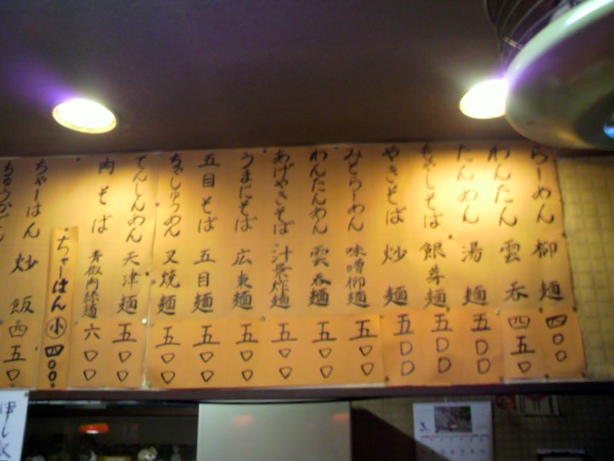 らーめん 柳麺 四〇〇
わんたん 雲呑 四五〇
たんめん 湯麺 五〇〇
もやしそば 銀芽麺 五〇〇
やきそば 炒麺 五〇〇
みそらーめん 味噌柳麺 五〇〇
わんたんめん 雲呑麺 五〇〇
あげやきそば 汁景炸麺 五〇〇
うまにそば 広東麺 五〇〇
五目そば 五目麺 五〇〇
ちゃしゅうめん 叉焼麺 五〇〇
てんしんめん 天津麺 五〇〇
肉そば 青椒肉絲麺 六〇〇
ちゃーはん 小 四〇〇
ちゃーはん 炒飯 四五〇
3